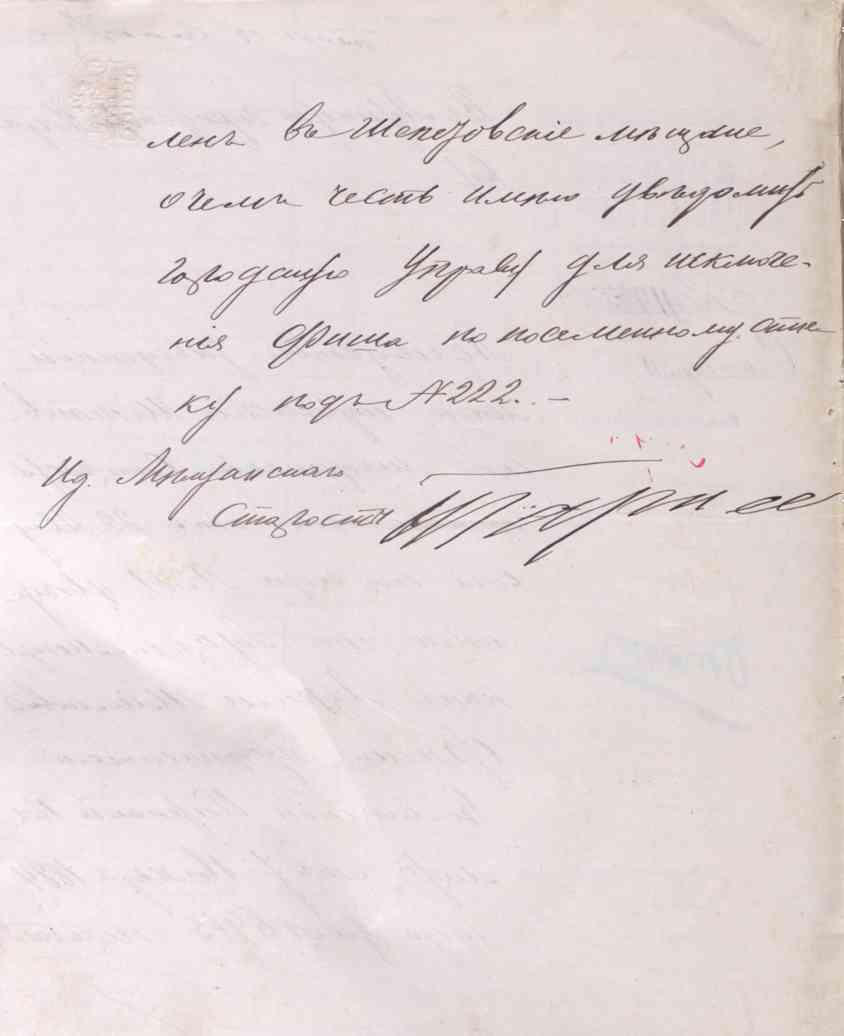 ленъ въ Шепетовскіе мѣщане,
о чемъ честь имѣю увѣдомить
Городскую Управу для исключе-
нія Фиша по посемейному спис-
ку подъ № 222. –
И д. Мѣщанскаго
Старосты